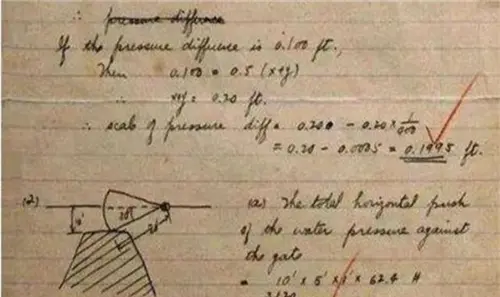 ∴ pressure difference
If the pressure difference is 0.100 ft.,
Then 0.100 = 0.5 (x+y)
∴ x+y = 0.20 ft.
∴ scale of pressure diff = 0.200 - 0.20 x 1/400
= 0.20 - 0.0005 = 0.1995 ft.
(2)
4'
(a) The total horizontal push
of the water pressure against
the gate
= 10' x 5' x 1' x 62.4 #
3120